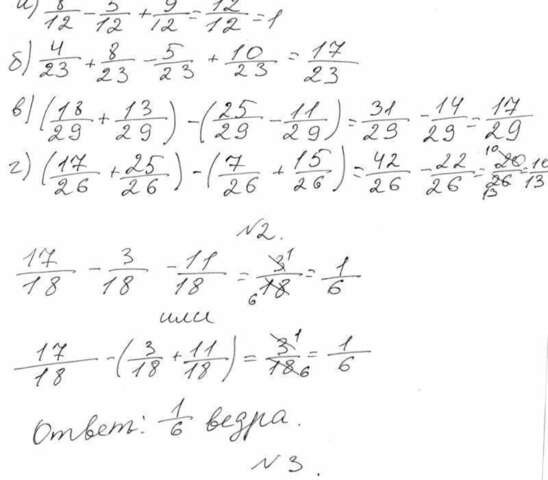 а) 8/12 - 5/12 + 9/12 = 12/12 = 1
б) 4/23 + 8/23 - 5/23 + 10/23 = 17/23
в) (18/29 + 13/29) - (25/29 - 11/29) = 31/29 - 14/29 = 17/29
г) (17/26 + 25/26) - (7/26 + 15/26) = 42/26 - 22/26 = 10 20/26 13 = 10/13
N2.
17/18 - 3/18 - 11/18 = 3 1/6 18 = 1/6
или
17/18 - (3/18 + 11/18) = 3 1/18 6 = 1/6
Ответ: 1/6 ведра.
N3.